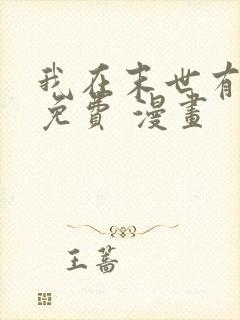 我在末世有
免費 漫畫
王蔷